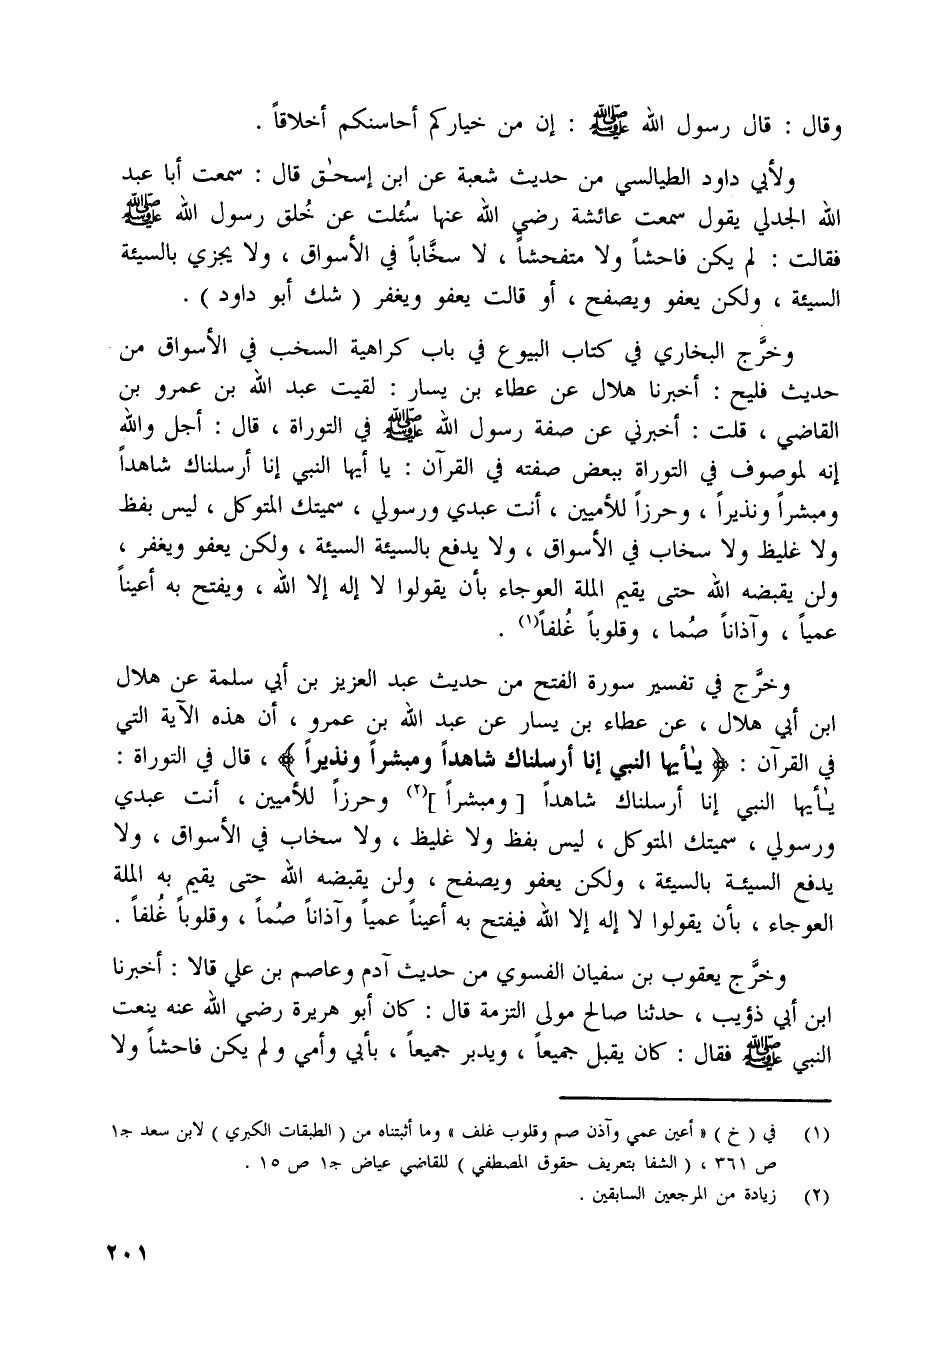 وقال : قال رسول الله ﷺ : إن من خياركم أحاسنكم أخلاقاً .
ولأبي داود الطيالسي من حديث شعبة عن ابن إسحٰق قال : سمعت أبا عبد
الله الجدلي يقول سمعت عائشة رضي الله عنها سُئلت عن خُلق رسول الله ﷺ
فقالت : لم يكن فاحشاً ولا متفحشاً ، لا سخَّاباً في الأسواق ، ولا يجزي بالسيئة
السيئة ، ولكن يعفو ويصفح ، أو قالت يعفو ويغفر ( شك أبو داود ) .
وخرَّج البخاري في كتاب البيوع في باب كراهية السخب في الأسواق من
حديث فليح : أخبرنا هلال عن عطاء بن يسار : لقيت عبد الله بن عمرو بن
القاضي ، قلت : أخبرني عن صفة رسول الله ﷺ في التوراة ، قال : أجل والله
إنه لموصوف في التوراة ببعض صفته في القرآن : يا أيها النبي إنا أرسلناك شاهداً
ومبشراً ونذيراً ، وحرزاً للأميين ، أنت عبدي ورسولي ، سميتك المتوكل ، ليس بفظ
ولا غليظ ولا سخاب في الأسواق ، ولا يدفع بالسيئة السيئة ، ولكن يعفو ويغفر ،
ولن يقبضه الله حتى يقيم الملة العوجاء بأن يقولوا لا إله إلا الله ، ويفتح به أعيناً
عمياً ، وآذاناً صُما ، وقلوباً غُلفاً(١) .
وخرَّج في تفسير سورة الفتح من حديث عبد العزيز بن أبي سلمة عن هلال
ابن أبي هلال ، عن عطاء بن يسار عن عبد الله بن عمرو ، أن هذه الآية التي
في القرآن : ﴿ يـٰأيها النبي إنا أرسلناك شاهداً ومبشراً ونذيراً ﴾ ، قال في التوراة :
يـٰأيها النبي إنا أرسلناك شاهداً [ ومبشراً ](٢) وحرزاً للأميين ، أنت عبدي
ورسولي ، سميتك المتوكل ، ليس بفظ ولا غليظ ، ولا سخاب في الأسواق ، ولا
يدفع السيئة بالسيئة ، ولكن يعفو ويصفح ، ولن يقبضه الله حتى يقيم به الملة
العوجاء ، بأن يقولوا لا إله إلا الله فيفتح به أعيناً عمياً وآذاناً صُماً ، وقلوباً غُلفاً .
وخرَّج يعقوب بن سفيان الفسوي من حديث آدم وعاصم بن علي قالا : أخبرنا
ابن أبي ذؤيب ، حدثنا صالح مولى التزمة قال : كان أبو هريرة رضي الله عنه ينعت
النبي ﷺ فقال : كان يقبل جميعاً ، ويدبر جميعاً ، بأبي وأمي ولم يكن فاحشاً ولا
(١) في ( خ ) « أعين عمي وآذن صم وقلوب غلف » وما أثبتناه من ( الطبقات الكبري ) لابن سعد جـ١
ص ٣٦١ ، ( الشفا بتعريف حقوق المصطفي ) للقاضي عياض جـ١ ص ١٥ .
(٢) زيادة من المرجعين السابقين .
٢٠١